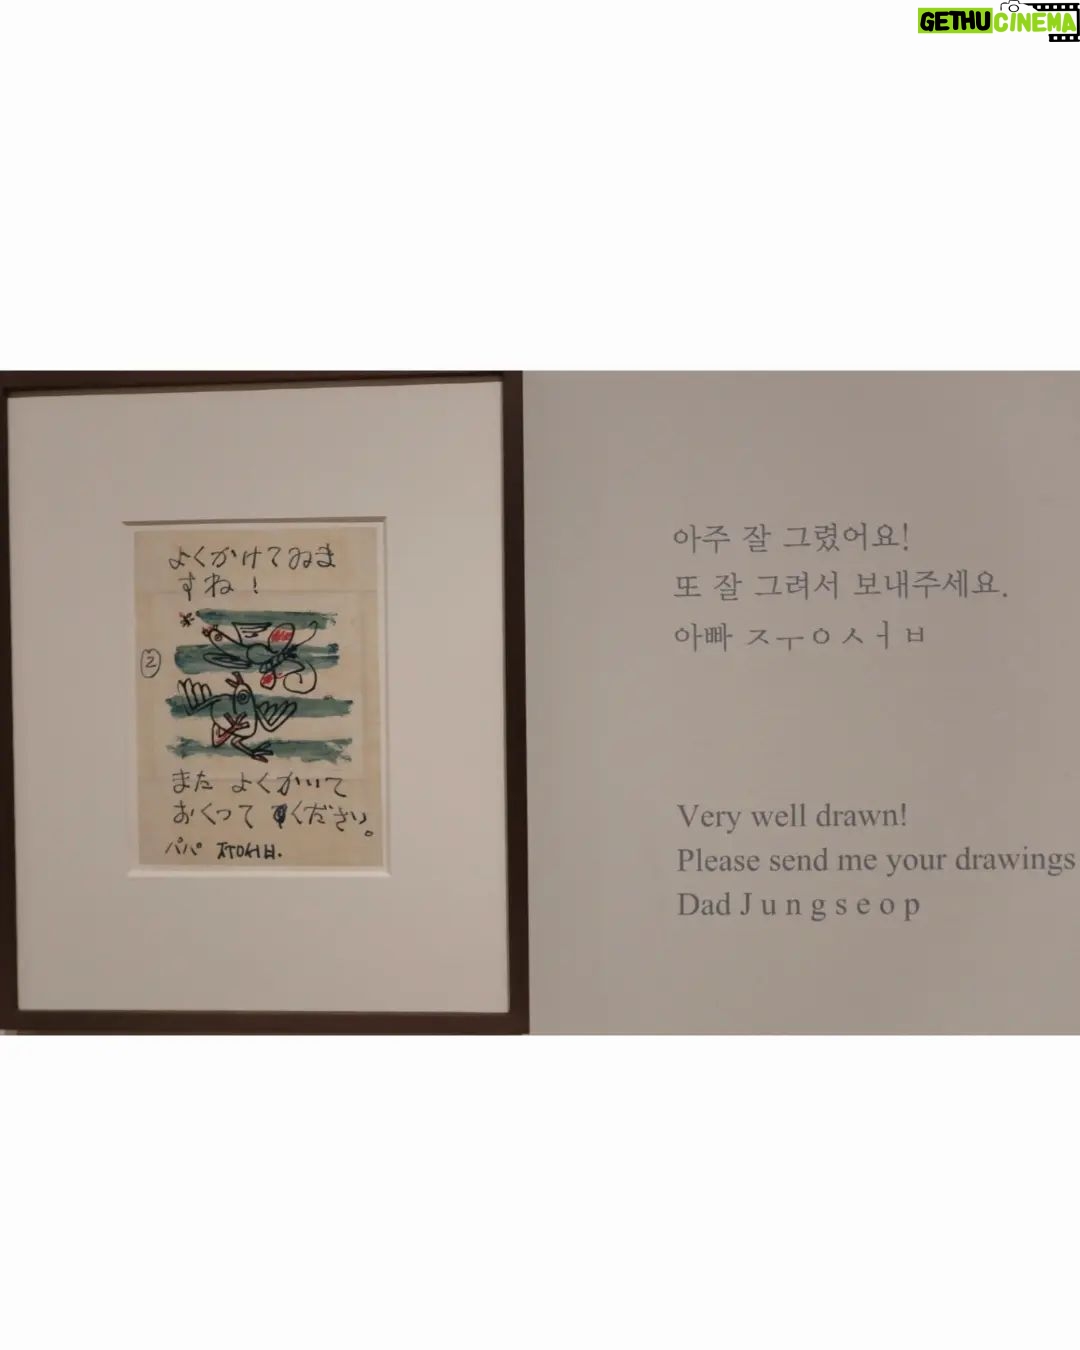 GETHUCINEMA
よくかけてゐま
すね!
2
また よくかいて
おくって ください。
パパ ㅈㅜㅇㅅㅓㅂ.
아주 잘 그렸어요!
또 잘 그려서 보내주세요.
아빠 ㅈㅜㅇㅅㅓㅂ
Very well drawn!
Please send me your drawings
Dad J u n g s e o p